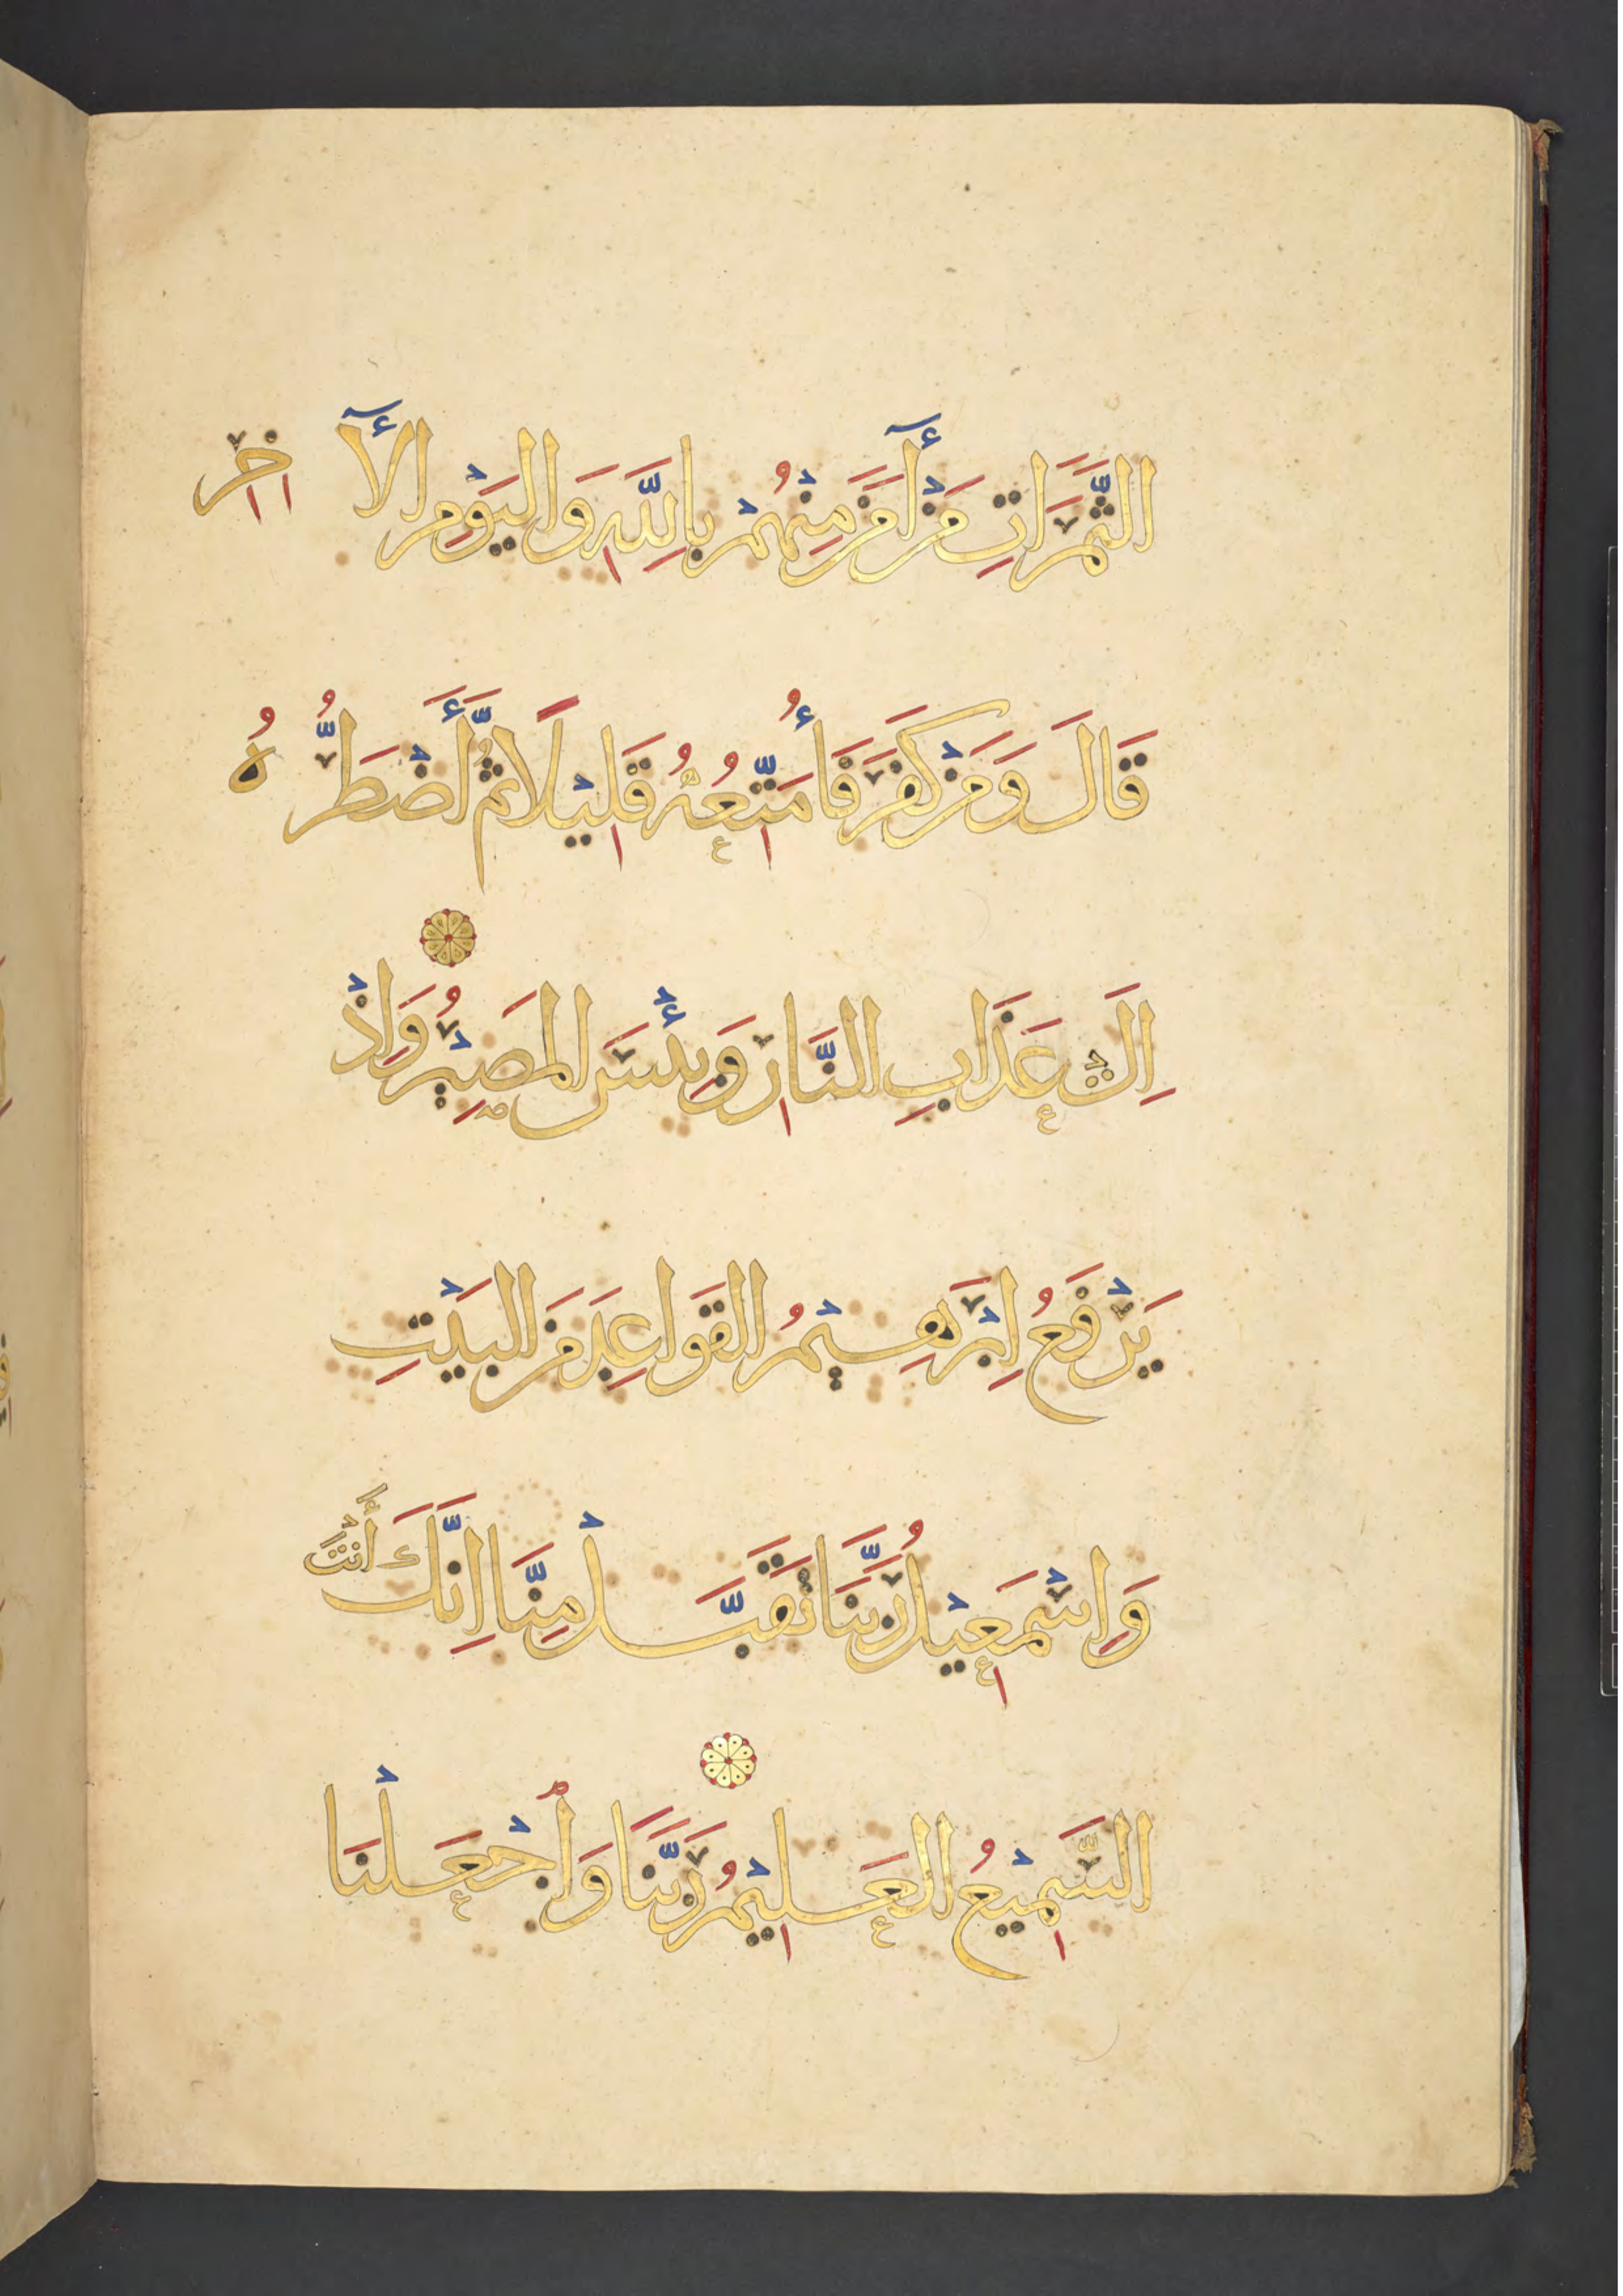 الثَّمَرَاتِ مَنْ أٓمَنَ مِنْهُمْ بِاللَّهِ وَالْيَوْمِ الْأٓخِرِ
قَالَ وَمَنْ كَفَرَ فَأُمَتِّعُهُ قَلِيْلًا ثُمَّ أَضْطَرُّهُ
اِلٰى عَذَابِ النَّارِ وَبِئْسَ الْمَصِيْرُ وَاِذْ
يَرْفَعُ اِبْرَهِيْمُ الْقَوَاعِدَ مِنَ الْبَيْتِ
وَاِسْمَعِيْلُ رَبَّنَا تَقَبَّلْ مِنَّا اِنَّكَ أَنْتَ
السَّمِيْعُ الْعَلِيْمُ رَبَّنَا وَاجْعَلْنَا